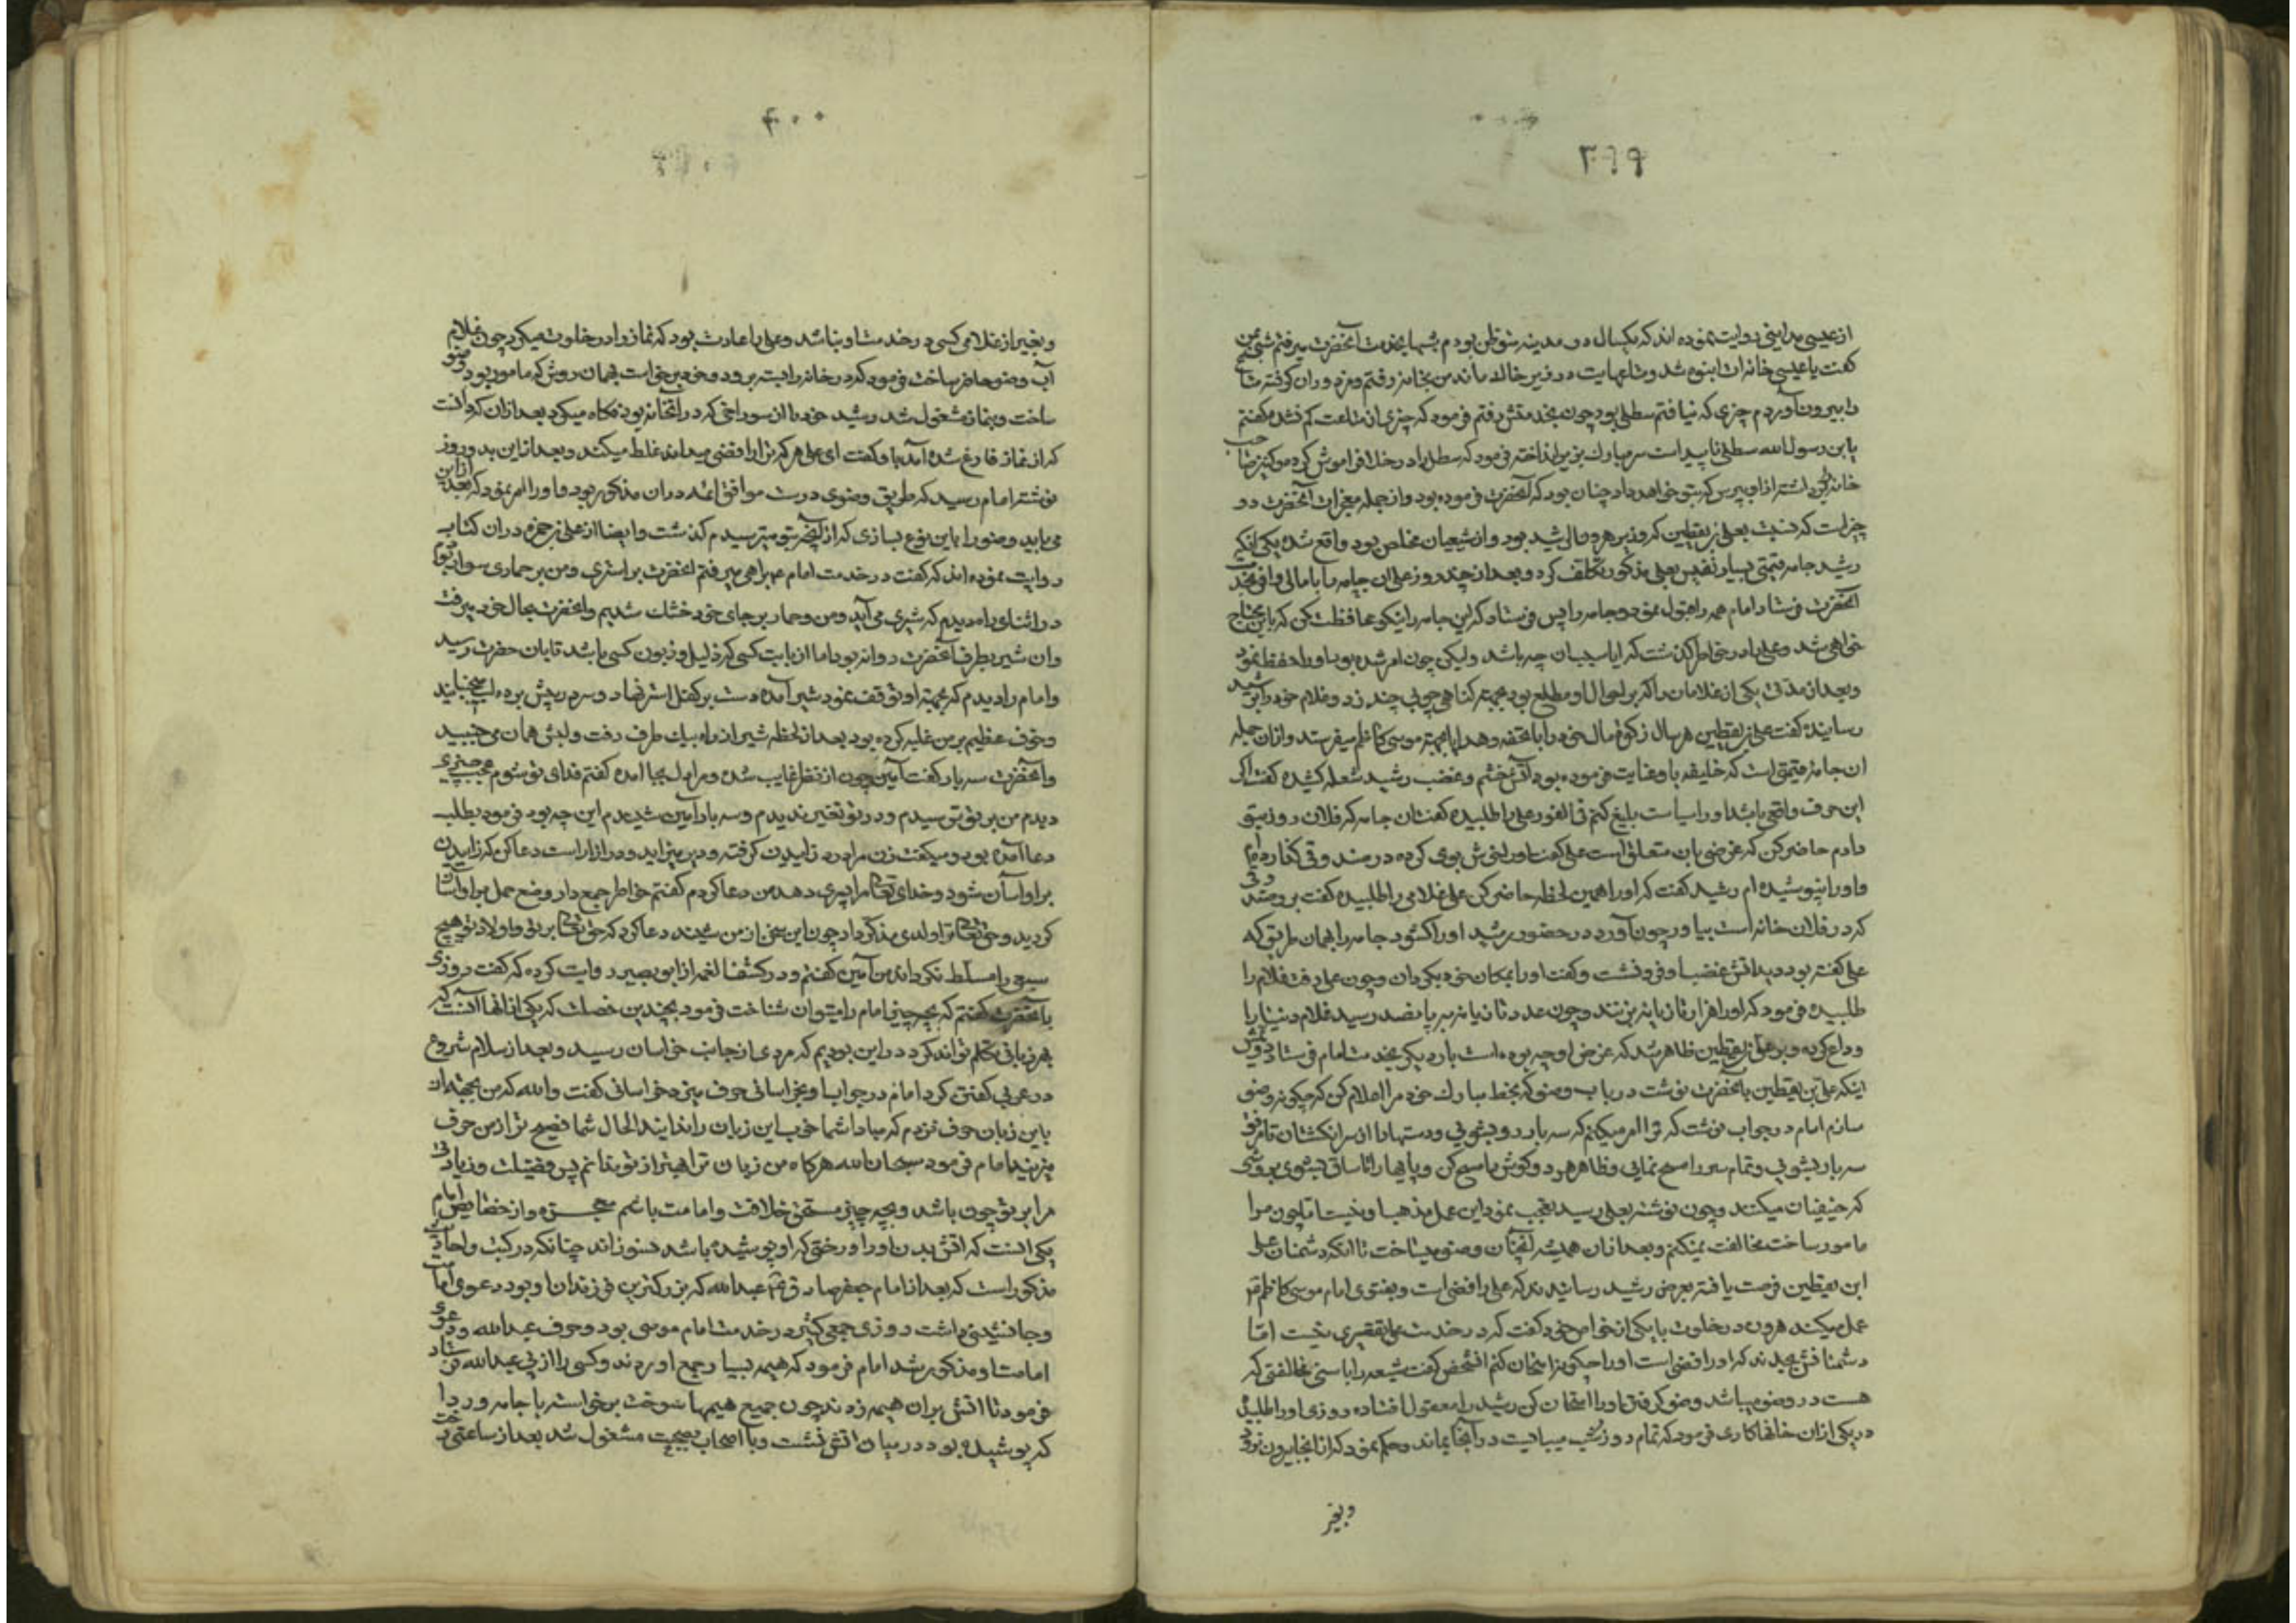 ۳۹۹
از عیسی مداینی روایت نموده اند که یکسال در مدینه متوطن بودم شبها بخدمت آنحضرت میرفتم شبی بمن
کفت یا عیسی خانه ات انبوه شد و متاعهایت در زیر خاک ماند من بخانه رفتم و مزدوران کرفته متاع
را بیرون آوردم چیزی که نیافتم سطلی بود چون بخدمتش رفتم فرمود که چیزی از متاعت کم نشد کفتم
یابن رسول الله سطلی ناپیداست سر مبارک بزیر انداخته فرمود که سطل را در خلا فراموش کرده و کنیز صاحب
خانه برداشته از او بپرس که بتو خواهد داد چنان بود که آنحضرت فرموده بود و از جمله معجزات آنحضرت دو
چیزاست که نسبت بعلی بن یقطین که وزیر هرون الرشید بود و از شیعیان مخلص بود واقع شده یکی آنکه
رشید جامه قیمتی بسیار نفیس بعلی مذکور تکلف کرد و بعد از چند روز علی ان جامه را با مالی وافی بخدمت
آنحضرت فرستاد امام همه را قبول نمود و جامه را پس فرستاد که این جامه را نیکو محافظت کن که باین محتاج
خواهی شد و علی را در خاطر کذشت که ایا سبب ان چه باشد ولیکن چون امر شده بود او را حفظ نمود
و بعد از مدتی یکی از غلامان را که بر احوال او مطلع بود بجهته کناهی چوبی چند زد و غلام خود را برشید
رسانیده کفت علی بن یقطین هر سال زکوة مال خود را با تحفه و هدایا بجهته موسی کاظم میفرستد و از ان جمله
ان جامه قیمتی است که خلیفه باو عنایت فرموده بود آتش خشم و غضب رشید شعله کشیده کفت اکر
این حرف واقعی باشد او را سیاست بلیغ کنم فی الفور علی را طلبیده کفت ان جامه که فلان روز بتو
دادم حاضر کن که غرضی بان متعلق است علی کفت او را خوش بوی کرده در صندوقی کذارده ام
و او را نپوشیده ام رشید کفت که او را همین لحظه حاضر کن علی غلامی را طلبیده کفت برو صندوقی
که در فلان خانه است بیاور چون آورد در حضور رشید او را کشود جامه را بهمان طریق که
علی کفته بود دید آتش غضب او فرونشست و کفت او را بمکان خود بکردان و چون علی رفت غلام را
طلبیده فرمود که او را هزار تازیانه بزنند و چون عدد تازیانه به پانصد رسید غلام دنیا را
وداع کرده و بر علی بن یقطین ظاهر شد که غرض او چه بوده است بار دیکر بخدمت امام فرستاد دویم
اینکه علی بن یقطین بآنحضرت نوشت در باب وضو که بخط مبارک خود مرا اعلام کن که چکونه وضو
سازم امام در جواب نوشت که ترا امر میکنم که سه بار رو بشوئی و دستها را از سر انکشتان تا مرفق
سه بار بشوئی و تمام سر را مسح نمائی و ظاهر هر دو کوش را مسح کن و پایها را تا ساق بشوی بروشی
که حنفیان میکنند و چون نوشته بعلی رسید تعجب نمود این عمل مذهب او نیست اما چون مرا
مامور ساخت مخالفت نمیکنم و بعد از ان همیشه آنچنان وضو میساخت تا انکه دشمنان علی
ابن یقطین فرصت یافته بعرض رشید رسانیدند که علی رافضی است و بفتوی امام موسی کاظم
عمل میکند هرون در خلوت با یکی از خواص خود کفت که در خدمت علی تقصیری نیست اما
دشمنانش بجدند که او رافضی است او را چکونه امتحان کنم انشخص کفت شیعه را با سنی مخالفتی که
هست در وضو میباشد وضو کرفتن او را امتحان کن رشید را معقول افتاده روزی او را طلبیده
در یکی از ان خانها کاری فرمود که تمام روز و شب میبایست در آنجا بماند و حکم نمود که از انجا بیرون نرود
وبغیر
۴۰۰
و بغیر از غلامی کسی در خدمت او نباشد و علی را عادت بود که نماز را در خلوت میکرد چون غلام
آب وضو حاضر ساخت فرمود که در خانه را بسته برود و خود برخاست بهمان روش که مامور بود وضو
ساخت و بنماز مشغول شد رشید خود از سوراخی که در آنخانه بود نکاه میکرد بعد از ان که دانست
که از نماز فارغ شده آمد باو کفت ای علی هر که ترا رافضی میداند غلط میکند و بعد از این بدو روز
نوشته امام رسید که طریق وضوی درست موافق ائمه در ان مذکور بود و او را امر نمود که بعد از این
می باید وضو را باین نوع بسازی که از آنچه بتو میترسیدم کذشت و ایضا از علی بن حمزه در ان کتاب
روایت نموده اند که کفت در خدمت امام بهمراهی میرفتم آنحضرت بر استری و من بر حماری سوار بودم
در اثنای راه دیدم که شیری می آید و من و حمار بر جای خود خشک شدیم و آنحضرت بحال خود میرفت
و ان شیر بطرف آنحضرت روانه بود اما از بابت کسی که ذلیل و زبون کسی باشد تا بان حضرت رسید
و امام را دیدم که بجهته او توقف نمود شیر آمده دست بر کفل استر نهاد و سر در پیش برده لب میجنبانید
و خوف عظیم بر من غلبه کرده بود بعد از لحظه شیر از راه بیک طرف رفت و لبش همان می جنبید
و آنحضرت سه بار کفت آمین چون از نظر غایب شد و مرا دل بجا امده کفتم فدای تو شوم عجب چیزی
دیدم من بر تو ترسیدم و در تو تغیر ندیدم و سه بار آمین شنیدم این چه بود فرمود بطلب
دعا آمده بود و میکفت زن مرا درد زاییدن کرفته و دیر میزاید و در ازار است دعا کن که زاییدن
بر او آسان شود و خدای تعالی مرا پسری دهد من دعا کردم کفتم خاطر جمع دار وضع حمل بر او آسان
کردید و حق تعالی ترا ولدی مذکر داد چون این سخن از من شنید دعا کرد که حق تعالی بر تو و اولاد تو هیچ
سبع را مسلط نکرداند من آمین کفتم و در کشف الغمه از ابو بصیر روایت کرده که کفت روزی
بآنحضرت کفتم که بچه چیز امام را میتوان شناخت فرمود بچندین خصلت که یکی از انها آنست که
بهر زبانی تکلم تواند کرد در این بودیم که مردی از جانب خراسان رسید و بعد از سلام شروع
در عربی کفتن کرد امام در جواب او بخراسانی حرف میزد خراسانی کفت والله که من بجهته ان
باین زبان حرف نزدم که مبادا شما خوب این زبان را ندانید الحال شما فصیح تر از من حرف
میزنید امام فرمود سبحان الله هرکاه من زبان ترا بهتر از تو ندانم پس فضیلت و زیادتی
مرا بر تو چون باشد و بچه چیز مستحق خلافت و امامت باشم معجزه و از خصایص امام
یکی آنست که آتش بدن او را و رختی که او پوشیده باشد نسوزاند چنانکه در کتب و احادیث
مذکور است که بعد از امام جعفر صادق عم عبدالله که بزرکترین فرزندان او بود دعوی امامت
و جانشینی داشت روزی جمعی کثیر در خدمت امام موسی بود و حرف عبدالله و دعوی
امامت او مذکور شد امام فرمود که هیمه بسیار جمع اوردند و کسی را از پی عبدالله فرستاد
فرمود تا آتش بران هیمه زدند چون جمیع هیمها سوخت برخواسته با جامه و ردا
که پوشیده بود در میان آتش نشست و با اصحاب بصحبت مشغول شد بعد از ساعتی